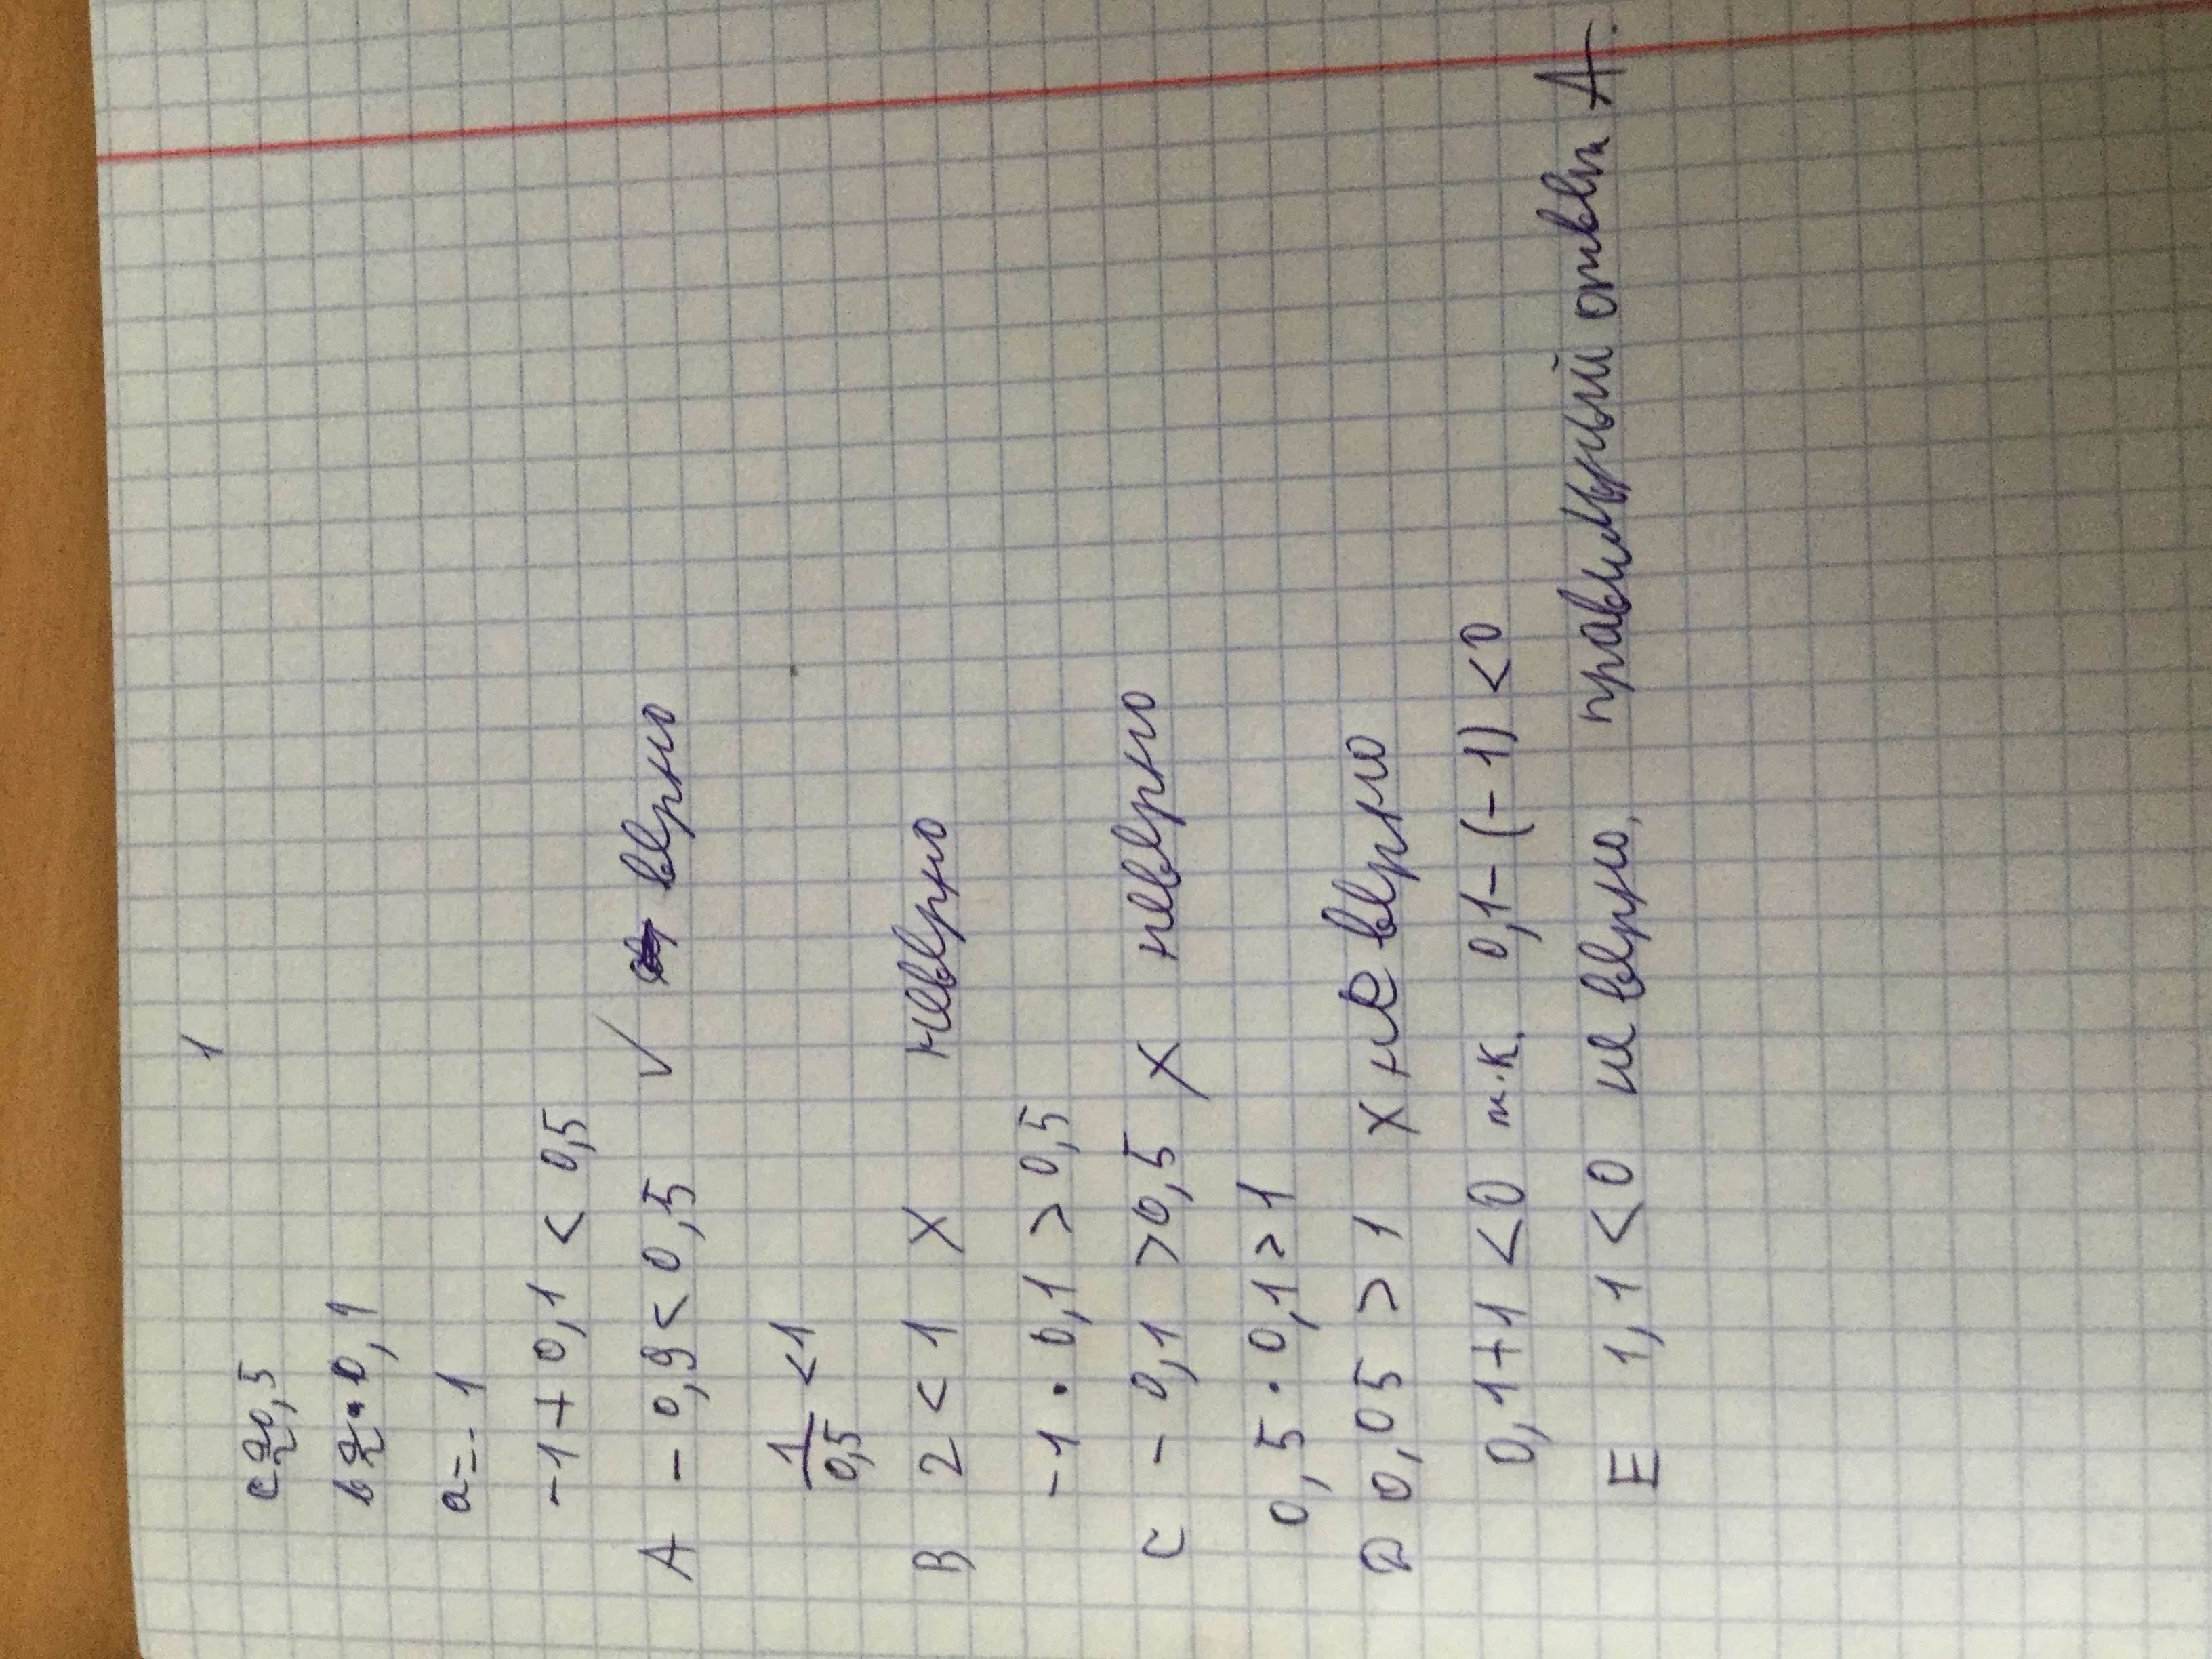 1
c≈0,5
b≈0,1
a=-1
-1+0,1<0,5
A -0,9<0,5 ✓ верно
1/0,5 <1
B 2<1 X неверно
-1·0,1>0,5
C -0,1>0,5 X неверно
0,5·0,1>1
D 0,05>1 X не верно
0,1+1<0 т.к. 0,1-(-1)<0
E 1,1<0 не верно, правильный ответ A.